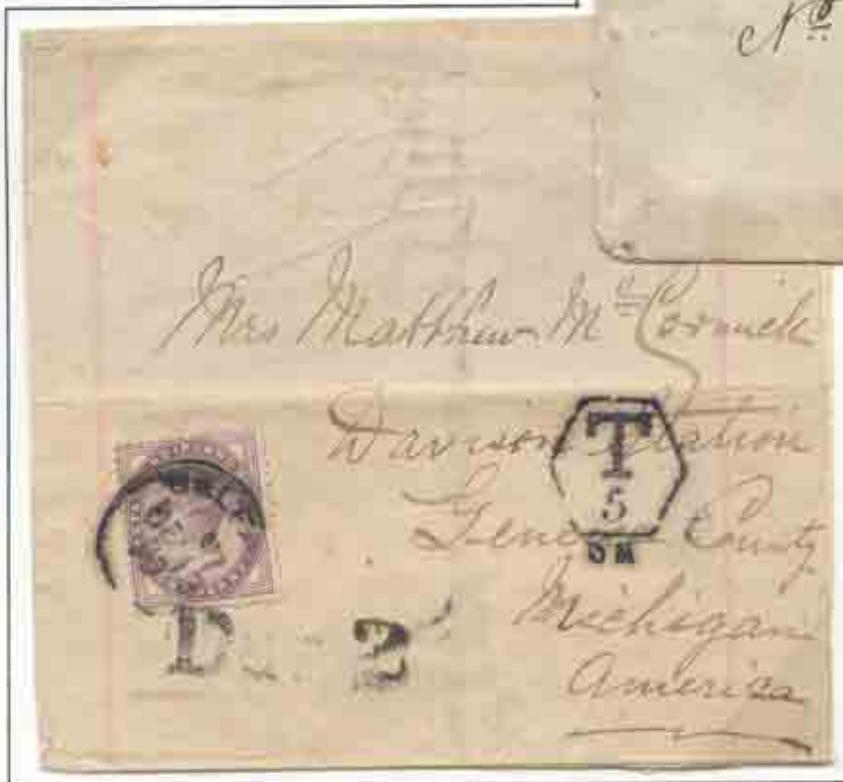 No
Mrs Matthew McCormick
Davison Station
County
Michigan
America
T
5
D 2